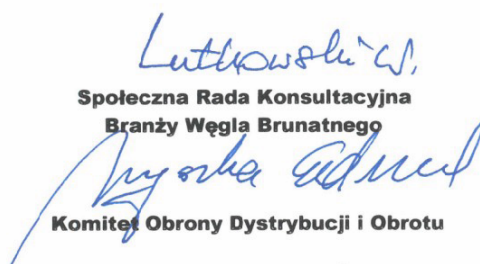 Lutkowski W.
Społeczna Rada Konsultacyjna
Branży Węgla Brunatnego
Komitet Obrony Dystrybucji i Obrotu